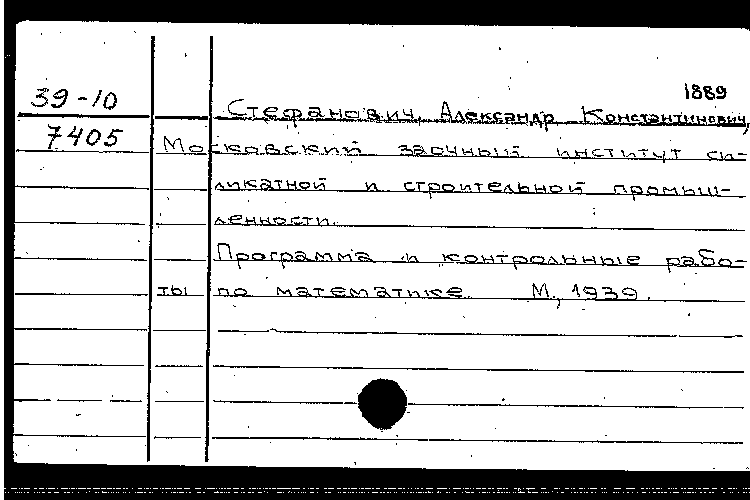 1889
39-10
Стефанович, Александр Константинович,
7405
Московский заочный институт си-
ликатной и строительной промыш-
ленности.
Программа и контрольные рабо-
ты по математике. М., 1939.